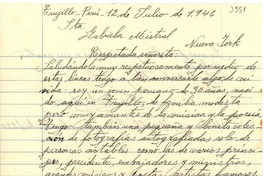 3551
Trujillo - Perú - 12 de Julio de 1.946
Srta.
Gabriela Mistral
Nueva York
Respetada señorita:
Saludándola muy respetuosamente por medio de
estas líneas tengo a bien narrarle algo de mi
vida: soy un joven peruano de 30 años, naci-
do aquí en Trujillo, de familia modesta
pero muy amantes de la música y la poesía
Tengo también una pequeña y bonita colec-
ción de fotografías autografiadas solo de
personas notables como las de varios prínci-
pes, presidentes, embajadores y ministros,
grandes músicos y poetas, artistas famosos